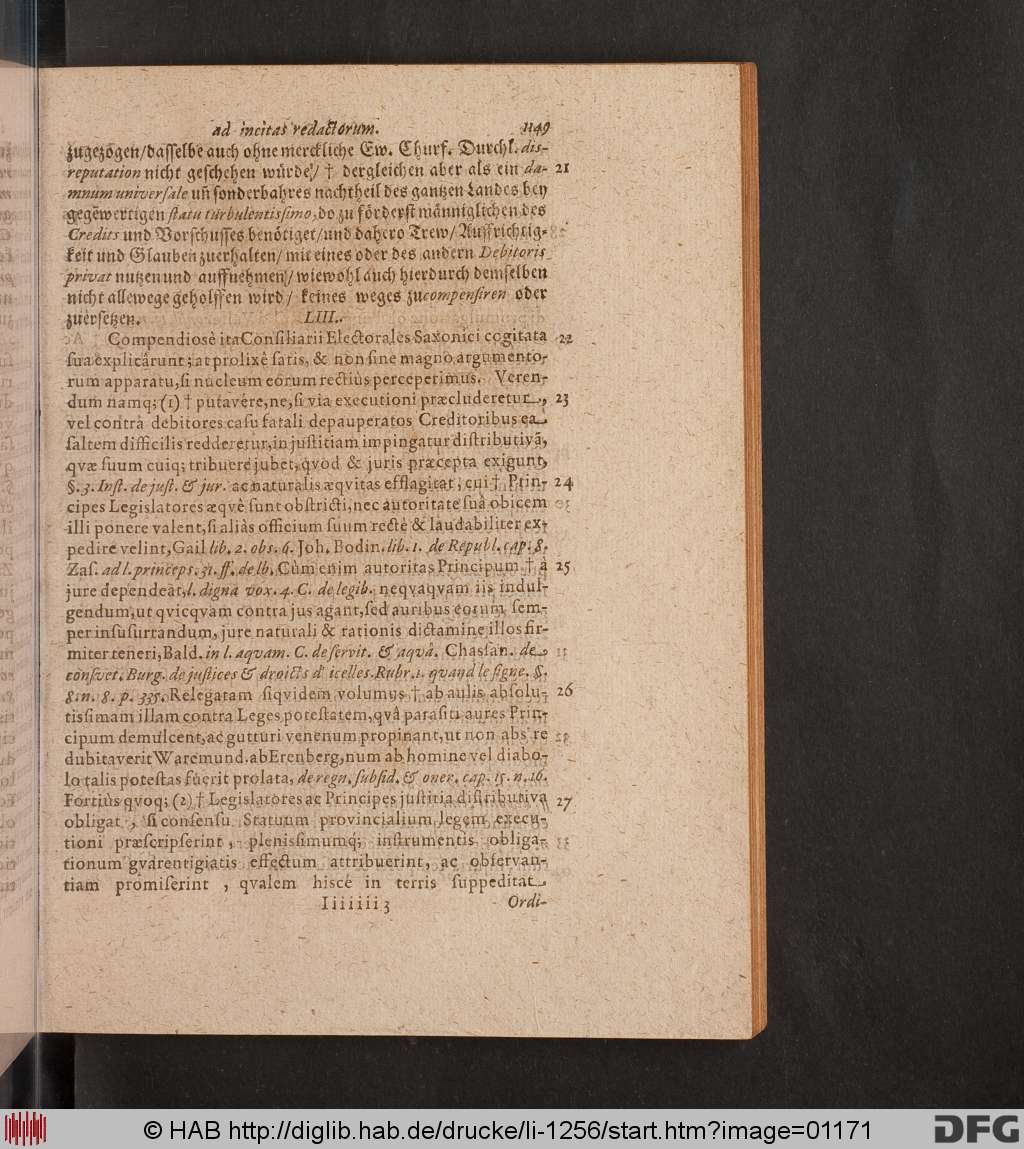 ad incitas redactorum. 1149
zugezogen/dasselbe auch ohne merckliche Ew. Churf. Durchl. dis-
reputation nicht geschehen würde/ † dergleichen aber als ein da- 21
mnum universale uñ sonderbahres nachtheil des gantzen Landes bey
gegẽwertigen statu turbulentissimo, do zu förderst männiglichen des
Credits und Vorschusses benötiget/und dahero Trew/Auffrichtig-
keit und Glauben zuerhalten/ mit eines oder des andern Debitoris
privat nutzen und auffnehmen/ wiewohl auch hierdurch demselben
nicht allewege geholffen wird/ keines weges zu compensiren oder
zuersetzen. LIII.
Compendiosè ita Consiliarii Electorales Saxonici cogitata 22
sua explicârunt; at prolixè satis, & non sine magno argumento-
rum apparatu, si nucleum eorum rectiùs perceperimus. Veren-
dum namq; (1) † putavêre, ne, si via executioni præcluderetur, 23
vel contrà debitores casu fatali depauperatos Creditoribus ea
saltem difficilis redderetur, in justitiam impingatur distributivã,
qvæ suum cuiq; tribuere jubet, qvod & juris præcepta exigunt,
§. 3. Inst. de just. & jur. ac naturalis æqvitas efflagitat, cui † Prin- 24
cipes Legislatores æqvè sunt obstricti, nec autoritate suâ obicem
illi ponere valent, si aliàs officium suum rectè & laudabiliter ex-
pedire velint, Gail lib. 2. obs. 6. Joh. Bodin. lib. 1. de Republ. cap. 8.
Zas. ad l. princeps. 31. ff. de lb. Cùm enim autoritas Principum † à 25
jure dependeat, l. digna vox. 4. C. de legib. neqvaqvam iis indul-
gendum, ut qvicqvam contra jus agant, sed auribus eorum sem-
per insusurrandum, jure naturali & rationis dictamine illos fir-
miter teneri, Bald. in l. aqvam. C. de servit. & aqvâ. Chassan. de
consvet. Burg. de justices & droicts d' icelles. Rubr. 1. qvand le signe. §.
8. n. 8. p. 335. Relegatam siqvidem volumus † ab aulis absolu- 26
tissimam illam contra Leges potestatem, qvâ parasiti aures Prin-
cipum demulcent, ac gutturi venenum propinant, ut non abs re
dubitaverit Waremund. ab Erenberg, num ab homine vel diabo-
lo talis potestas fuerit prolata, de regn. subsid. & oner. cap. 15. n. 16.
Fortiùs qvoq; (2) † Legislatores ac Principes justitia distributiva 27
obligat, si consensu Statuum provincialium legem execu-
tioni præscripserint, plenissimumq; instrumentis obliga-
tionum gvarentigiatis effectum attribuerint, ac observan-
tiam promiserint, qvalem hisce in terris suppeditat
Iiiiiii 3 Ordi-
© HAB http://diglib.hab.de/drucke/li-1256/start.htm?image=01171
DFG